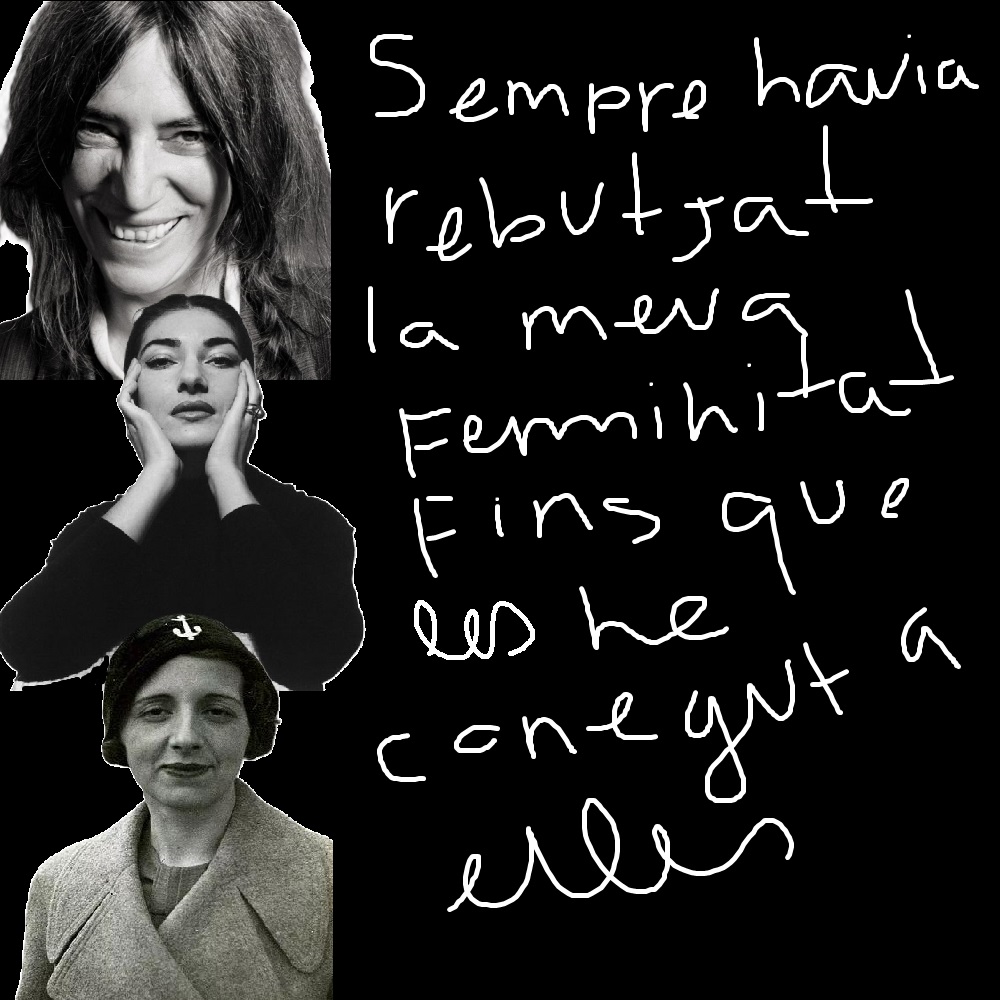 Sempre havia
rebutjat
la meva
Feminitat
Fins que
les he
conegut a
elles